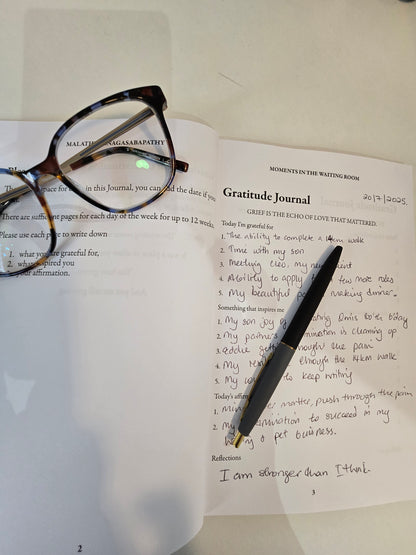 MALATH NAGASABAPATHY
space for in this Journal, you can add the date if you
There are sufficient pages for each day of the week for up to 12 weeks.
Please use each page to write down
1. what you are grateful for,
2. what inspired you
your affirmation.
2
MOMENTS IN THE WAITING ROOM
Gratitude Journal
20/7/2025.
GRIEF IS THE ECHO OF LOVE THAT MATTERED.
Today I'm grateful for
1. The ability to complete a 14km walk
2. Time with my son
3. Meeting Cleo, my new
4. Ability to apply few more roles
5. My beautiful making dinner.
Something that inspires me
1. My son joy of b'day
2. My is cleaning up
3. eddie through the pain
4. My through the 14km walk
5. My to keep writing
Today's
1. over matter, push through the pain
2. My determination to succeed in my
& pet business.
Reflections
I am stronger than I think.
3